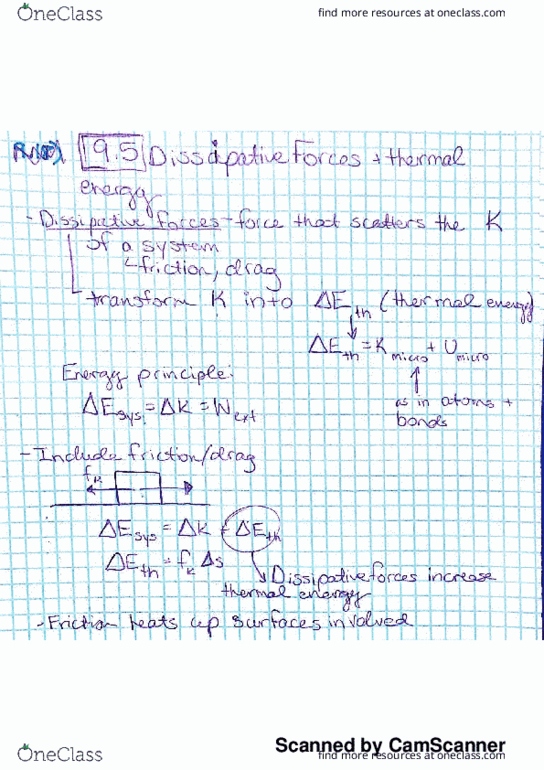 OneClass
find more resources at oneclass.com
9.5 Dissipative Forces + thermal
energy
- Dissipative forces - force that scatters the K
of a system
↳ friction, drag
transform K into ΔE_th (thermal energy)
ΔE_th = K_micro + U_micro
as in atoms +
bonds
Energy principle:
ΔE_sys = ΔK = W_ext
- Include friction/drag
f_k
ΔE_sys = ΔK + ΔE_th
ΔE_th = f_k Δs
Dissipative forces increase
thermal energy
- Friction heats up surfaces involved
Scanned by CamScanner
OneClass
find more resources at oneclass.com